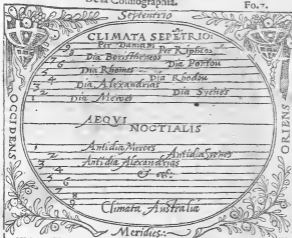 De la Cosmographia. Fo. 7.
Septentrio
CLIMATA SEPTĒTRIO:
9
8 Per Daniam Per Ripheos
7 Dia Boristhenes
6 Dia Pontou
5 Dia Rhomes
4 Dia Rhodou
3 Dia Alexandrias
2 Dia Syenes
1 Dia Meroes
OCCIDENS
ORIENS
AEQVI
NOCTIALIS
1 Antidia Meroes
2 Antidia Syenes
3 Antidia Alexandrias
4
5 & cet:
6
7
8
9
Climata Australia
Meridies: